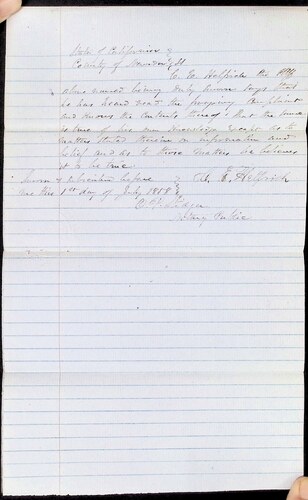 State of California }
County of } ss
C. E. Helfrich the Plff
above named being duly sworn says that
he has heard read the foregoing Complaint
and knows the contents thereof that the same
is true of his own knowledge except as to
matters stated therein on information and
belief and as to those matters he believes
it to be true
Sworn & subscribed before } C. E. Helfrich
me this 1st day of July 1858 }
Notary Public